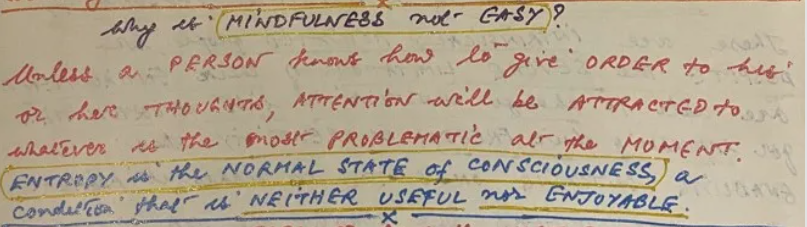 Why is MINDFULNESS not EASY?
Unless a PERSON knows how to give ORDER to his
or her THOUGHTS, ATTENTION will be ATTRACTED to
whatever is the most PROBLEMATIC at the MOMENT.
ENTROPY is the NORMAL STATE of CONSCIOUSNESS, a
condition that is NEITHER USEFUL nor ENJOYABLE.
x